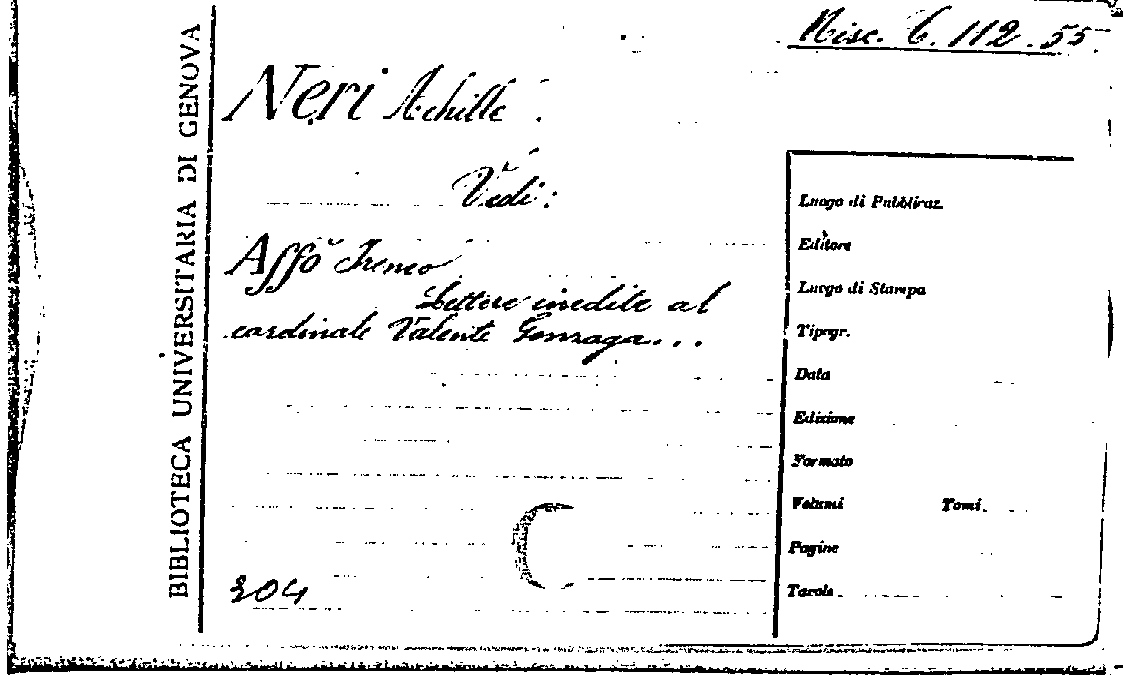 Misc. C. 112. 55.
BIBLIOTECA UNIVERSITARIA DI GENOVA
Neri Achille.
Vedi:
Affò Ireneo
Lettere inedite al
cardinale Valente Gonzaga...
304
Luogo di Pubblicaz.
Editore
Luogo di Stampa
Tipogr.
Data
Edizione
Formato
Volumi Tomi
Pagine
Tavole